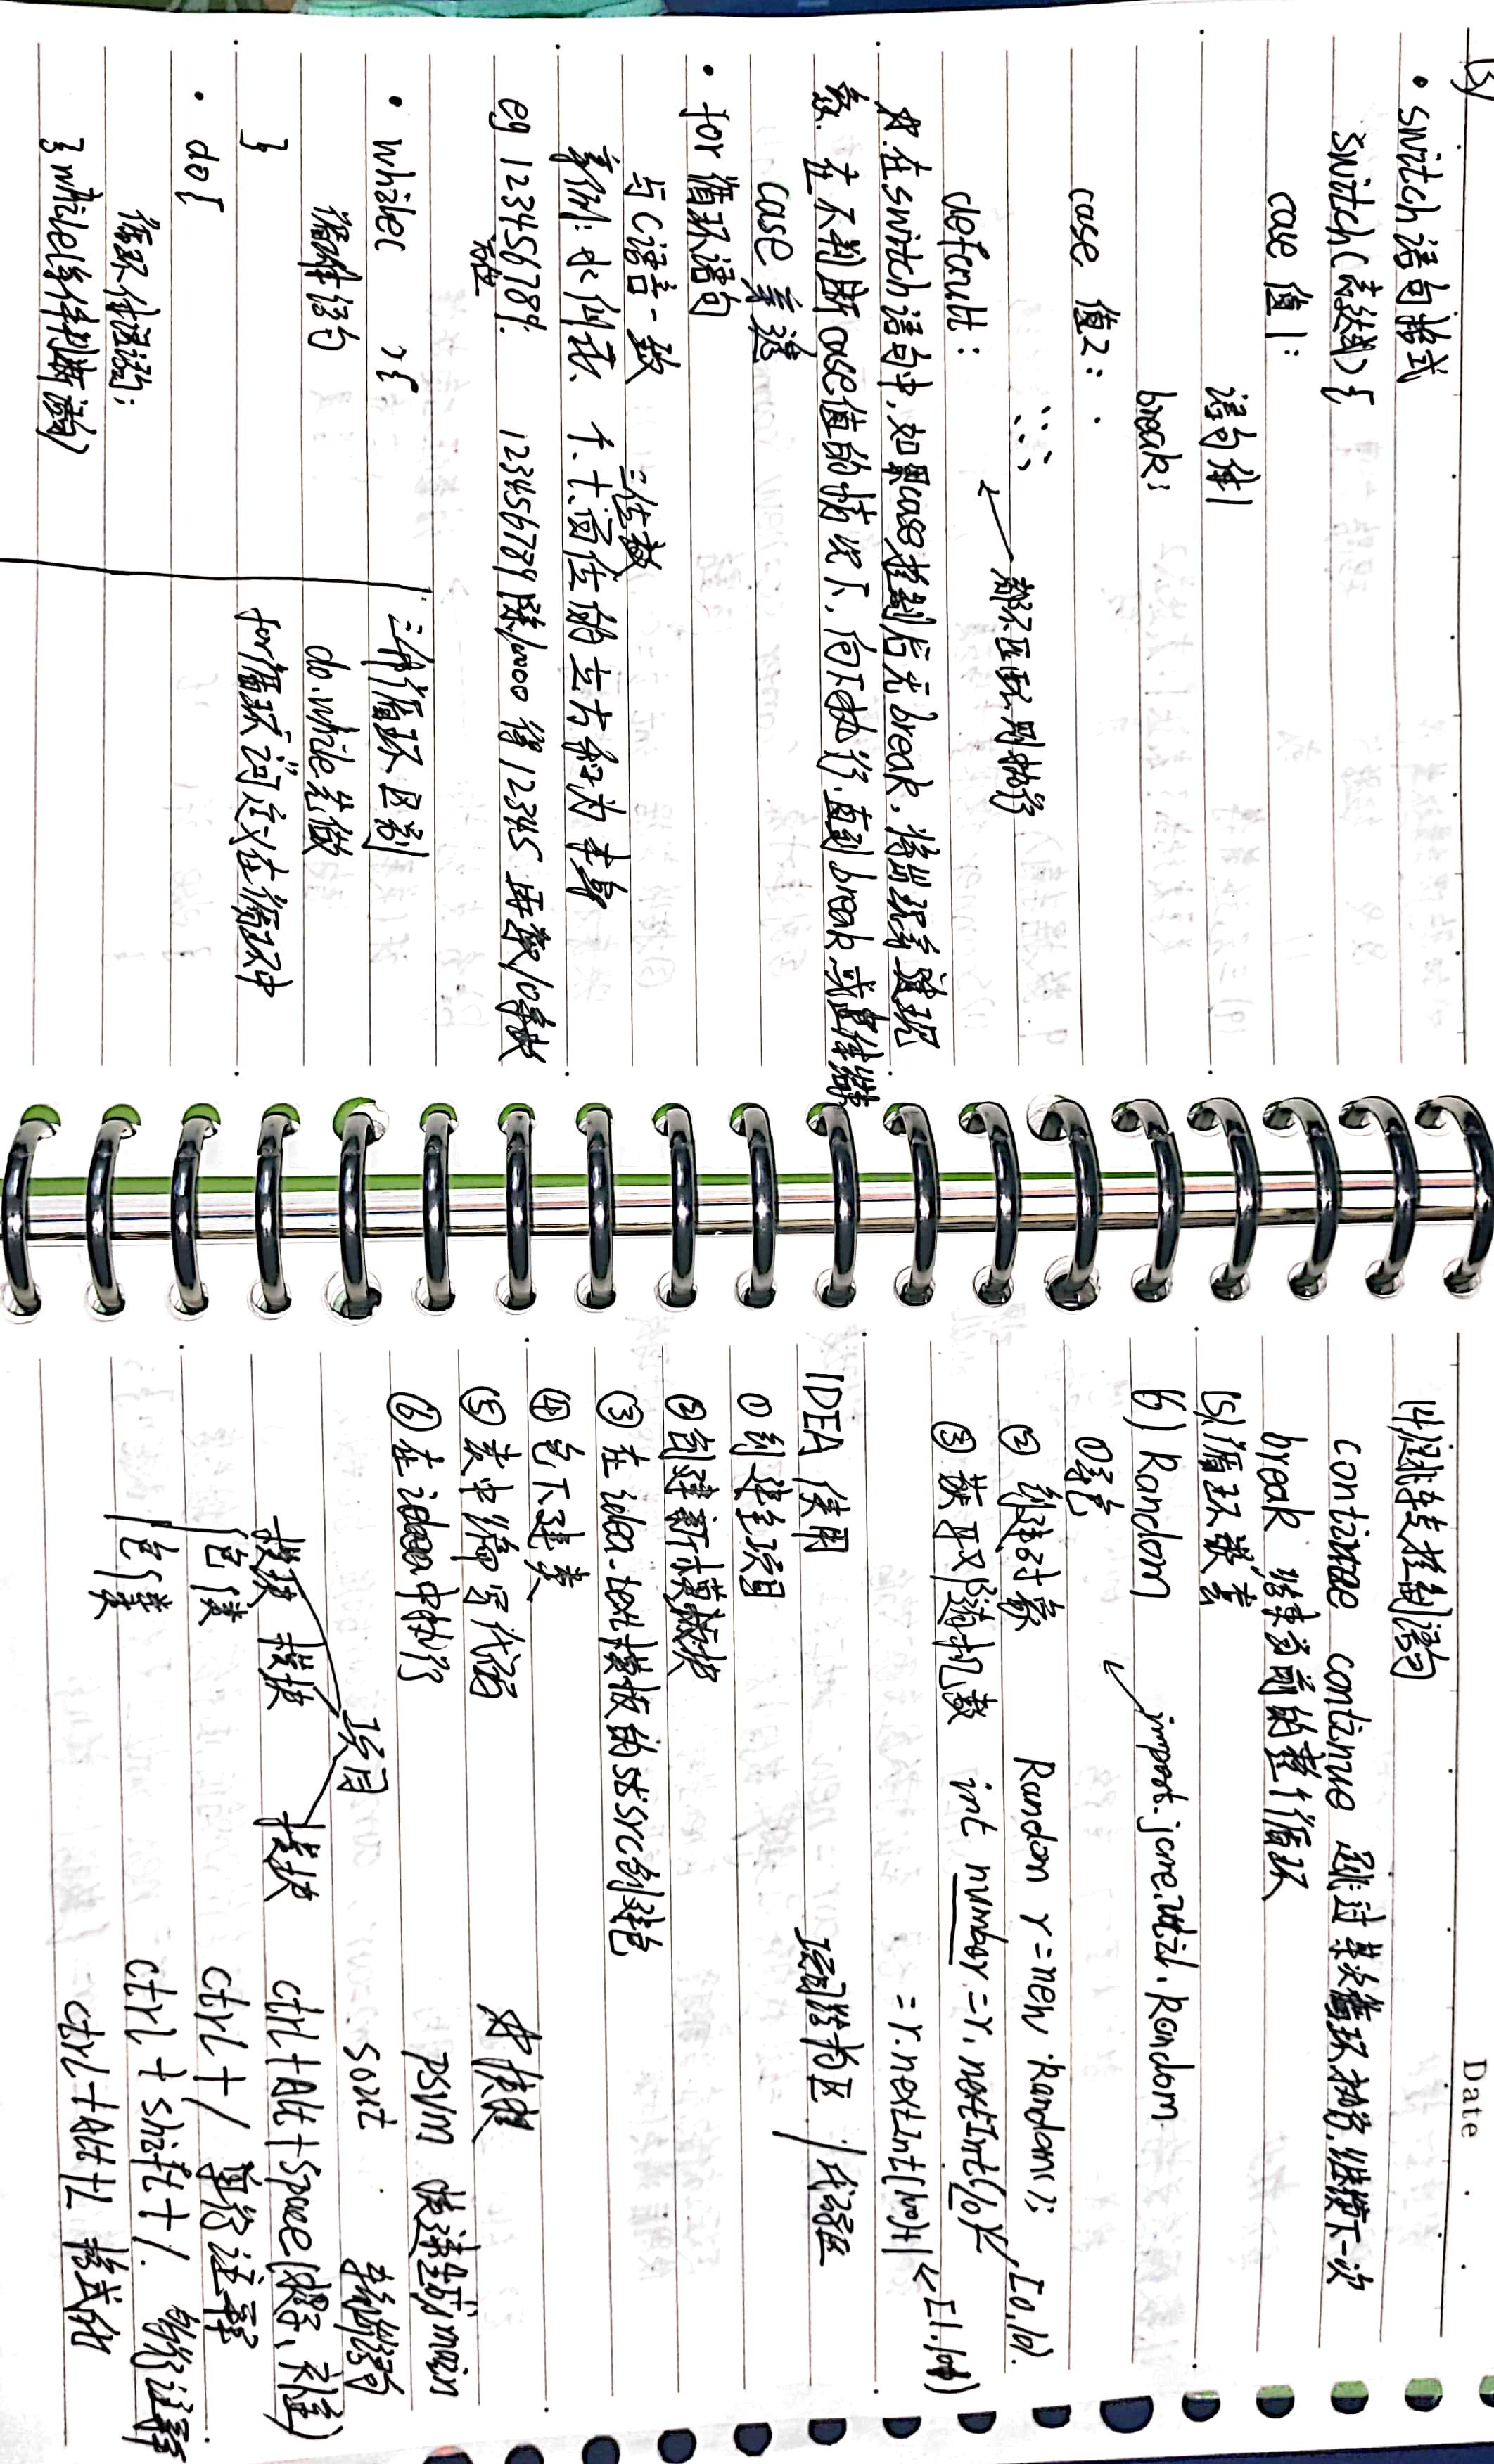 (3)
• switch语句格式
switch(表达式){
case 值1:
语句体1
break;
case 值2:
都不匹配则执行
default:
在switch语句中,如果case控制后无break,将出现穿透现
象. 在不判断case值的情况下,向下执行.直到break或整体结束
case 穿透
• for 循环语句
与C语言一致
三位数
案例: 水仙花、个.十.百位的立方和为本身
eg 123456789: 123456789除10000 得12345 再取10余数
万位
• while( ){
循环体语句
}
• do{
循环体语句;
}while(条件判断语句)
三种循环区别
do.while.先做
for循环 "i"可定义在循环中
Date
(4)跳转控制语句
continue continue 跳过某次循环执行.继续下一次
break 结束当前的整个循环
(5)循环嵌套
(6) Random import.java.util.Random
①导包
② 创建对象 Random r=new Random();
③ 获取随机数 int number=r.nextInt(10) [0,10).
=r.nextInt(100)+1 [1.101)
IDEA 使用 项目结构区 / 代码区
①创建空项目
②创建新模块
③在idea-text模板的src创建包
④包下建类
⑤类中编写代码
⑥在idea中执行
项目
模块 模块 模块
包{类
包{类
快捷键
psvm 快速生成main
sout 输出语句
ctrl+Alt+Space(提示、补全)
ctrl+/ 单行注释
ctrl+shift+/. 多行注释
ctrl+Alt+L 格式化